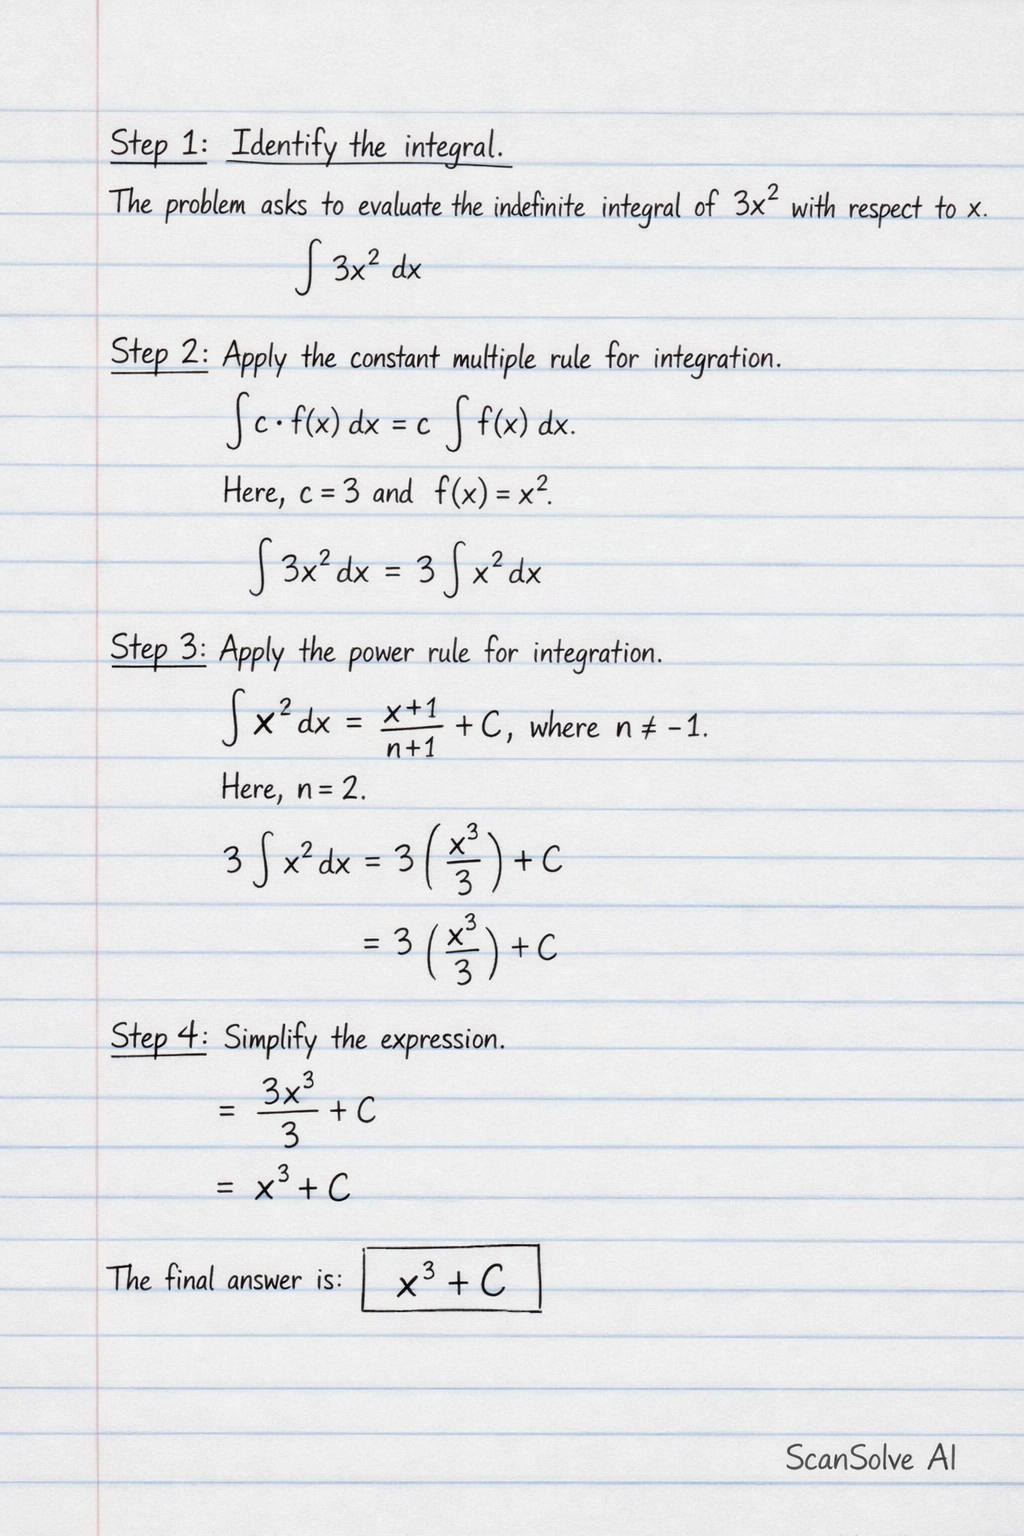 Step 1: Identify the integral.
The problem asks to evaluate the indefinite integral of 3x² with respect to x.
∫ 3x² dx
Step 2: Apply the constant multiple rule for integration.
∫ c · f(x) dx = c ∫ f(x) dx.
Here, c = 3 and f(x) = x².
∫ 3x² dx = 3 ∫ x² dx
Step 3: Apply the power rule for integration.
∫ x² dx = (x+1)/(n+1) + C, where n ≠ -1.
Here, n = 2.
3 ∫ x² dx = 3 (x³/3) + C
= 3 (x³/3) + C
Step 4: Simplify the expression.
= 3x³/3 + C
= x³ + C
The final answer is: x³ + C
ScanSolve AI